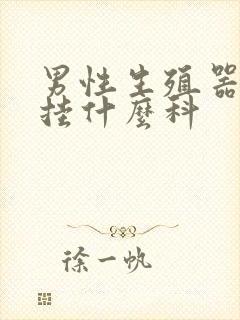 男性生殖器
挂什麽科
徐一帆